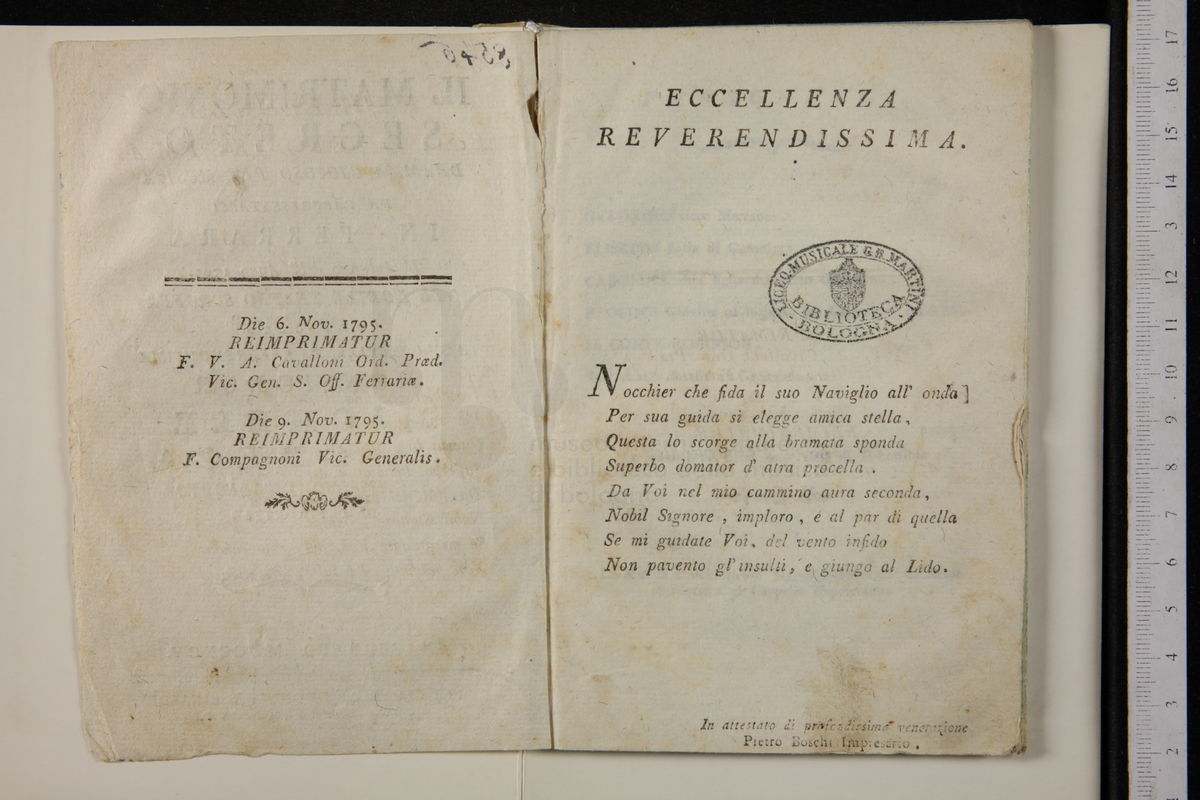 Die 6. Nov. 1795.
REIMPRIMATUR
F. V. A. Cavalloni Ord. Præd.
Vic. Gen. S. Off. Ferrariæ.
Die 9. Nov. 1795.
REIMPRIMATUR
F. Compagnoni Vic. Generalis.
ECCELLENZA
REVERENDISSIMA.
LICEO MUSICALE G. B. MARTINI
BIBLIOTECA
BOLOGNA
Nocchier che fida il suo Naviglio all' onda]
Per sua guida si elegge amica stella,
Questa lo scorge alla bramata sponda
Superbo domator d' atra procella .
Da Voi nel mio cammino aura seconda,
Nobil Signore , imploro , e al par di quella
Se mi guidate Voi, del vento infido
Non pavento gl' insulti, e giungo al Lido.
In attestato di profondissima venerazione
Pietro Boschi Impresario .
17
16
15
14
13
12
11
10
9
8
7
6
5
4
3
2